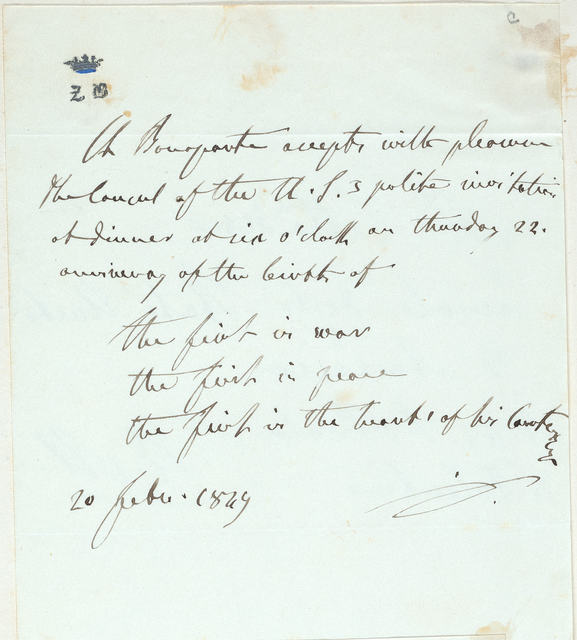 c
Z B
Ch Bonaparte accepts with pleasure
the Consul of the U. S.s polite invitation
at dinner at six o'clock on thursday 22.
anniversary of the birth of
the first in war
the first in peace
the first in the hearts of his Countrymen
20 febr. 1849